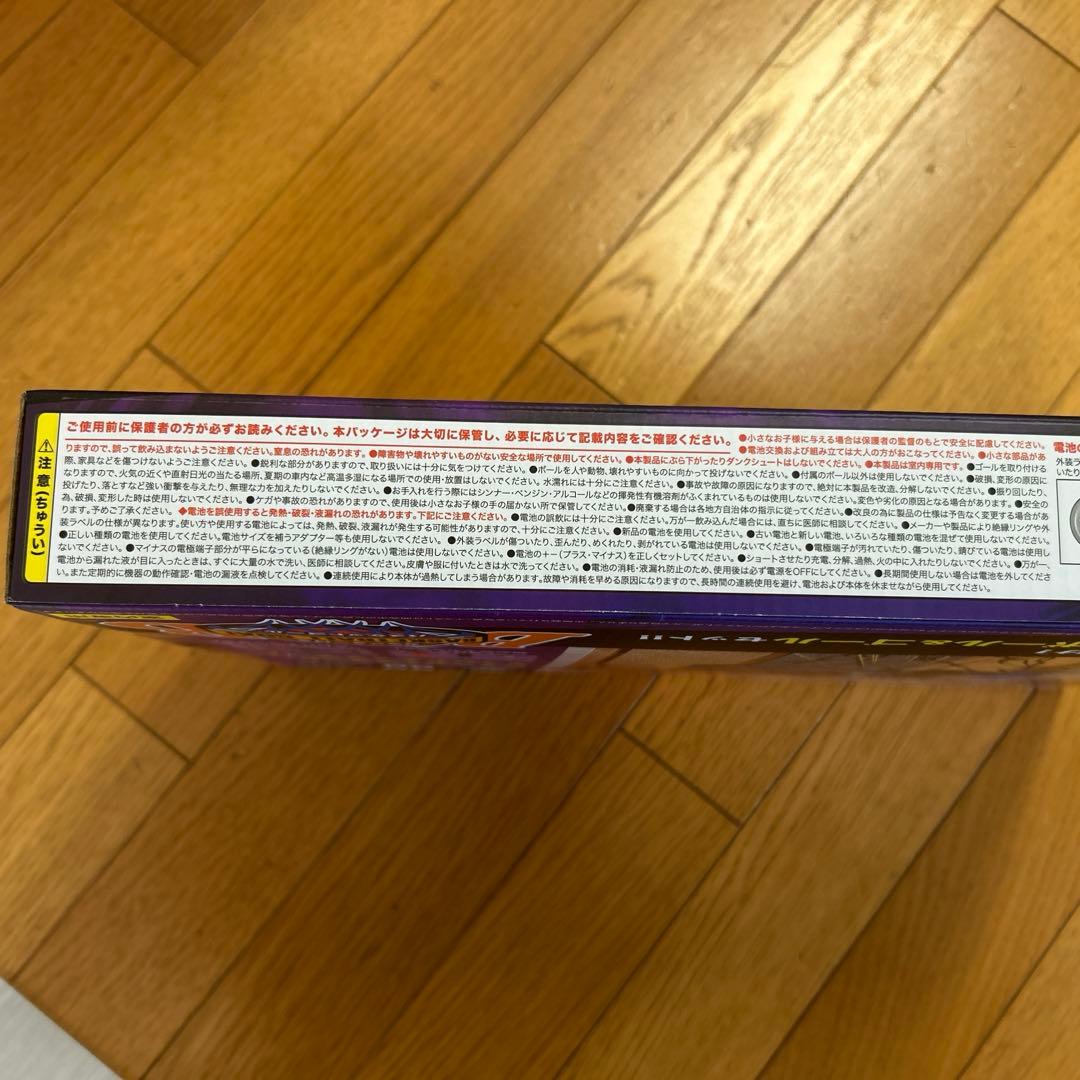 ⚠注意(ちゅうい)
ご使用前に保護者の方が必ずお読みください。本パッケージは大切に保管し、必要に応じて記載内容をご確認ください。
●小さなお子様に与える場合は保護者の監督のもとで安全に配慮してください。
●電池交換および組み立ては大人の方がおこなってください。●小さな部品があ
りますので、誤って飲み込まないようご注意ください。窒息の恐れがあります。●障害物や壊れやすいものがない安全な場所で使用してください。●本製品にぶら下がったりダンクシュートはしないでください。●本製品は室内専用です。●ゴールを取り付ける
際、家具などを傷つけないようご注意ください。●鋭利な部分がありますので、取り扱いには十分に気をつけてください。●ボールを人や動物、壊れやすいものに向かって投げないでください。●付属のボール以外は使用しないでください。●破損、変形の原因に
なりますので、火気の近くや直射日光の当たる場所、夏期の車内など高温多湿になる場所での使用・放置はしないでください。水濡れには十分にご注意ください。●事故や故障の原因になりますので、絶対に本製品を改造、分解しないでください。●振り回したり、
投げたり、落とすなど強い衝撃を与えたり、無理な力を加えたりしないでください。●お手入れを行う際にはシンナー・ベンジン・アルコールなどの揮発性有機溶剤がふくまれているものは使用しないでください。変色や劣化の原因となる場合があります。●安全の
為、破損、変形した時は使用しないでください。●ケガや事故の恐れがありますので、使用後は小さなお子様の手の届かない所で保管してください。●廃棄する場合は各地方自治体の指示に従ってください。●改良の為に製品の仕様は予告なく変更する場合があ
ります。予めご了承ください。◆電池を誤使用すると発熱・破裂・液漏れの恐れがあります。下記にご注意ください。●電池の誤飲には十分ご注意ください。万が一飲み込んだ場合には、直ちに医師に相談してください。●メーカーや製品により絶縁リングや外
装ラベルの仕様が異なります。使い方や使用する電池によっては、発熱、破裂、液漏れが発生する可能性がありますので、十分にご注意ください。●新品の電池を使用してください。●古い電池と新しい電池、いろいろな種類の電池を混ぜて使用しないでください。
●正しい種類の電池を使用してください。電池サイズを補うアダプター等も使用しないでください。●外装ラベルが傷ついたり、歪んだり、めくれたり、剥がれている電池は使用しないでください。●電極端子が汚れていたり、傷ついたり、錆びている電池は使用し
ないでください。●マイナスの電極端子部分が平らになっている(絶縁リングがない)電池は使用しないでください。●電池の+-(プラス・マイナス)を正しくセットしてください。●ショートさせたり充電、分解、過熱、火の中に入れたりしないでください。●万が一、
電池から漏れた液が目に入ったときは、すぐに大量の水で洗い、医師に相談してください。皮膚や服に付いたときは水で洗ってください。●電池の消耗・液漏れ防止のため、使用後は必ず電源をOFFにしてください。●長期間使用しない場合は電池を外してくださ
い。また定期的に機器の動作確認・電池の漏液を点検してください。●連続使用により本体が過熱してしまう場合があります。故障や消耗を早める原因になりますので、長時間の連続使用を避け、電池および本体を休ませながら使用してください。
電池の
外装ラ
いたり
ール&ゴールセット!!